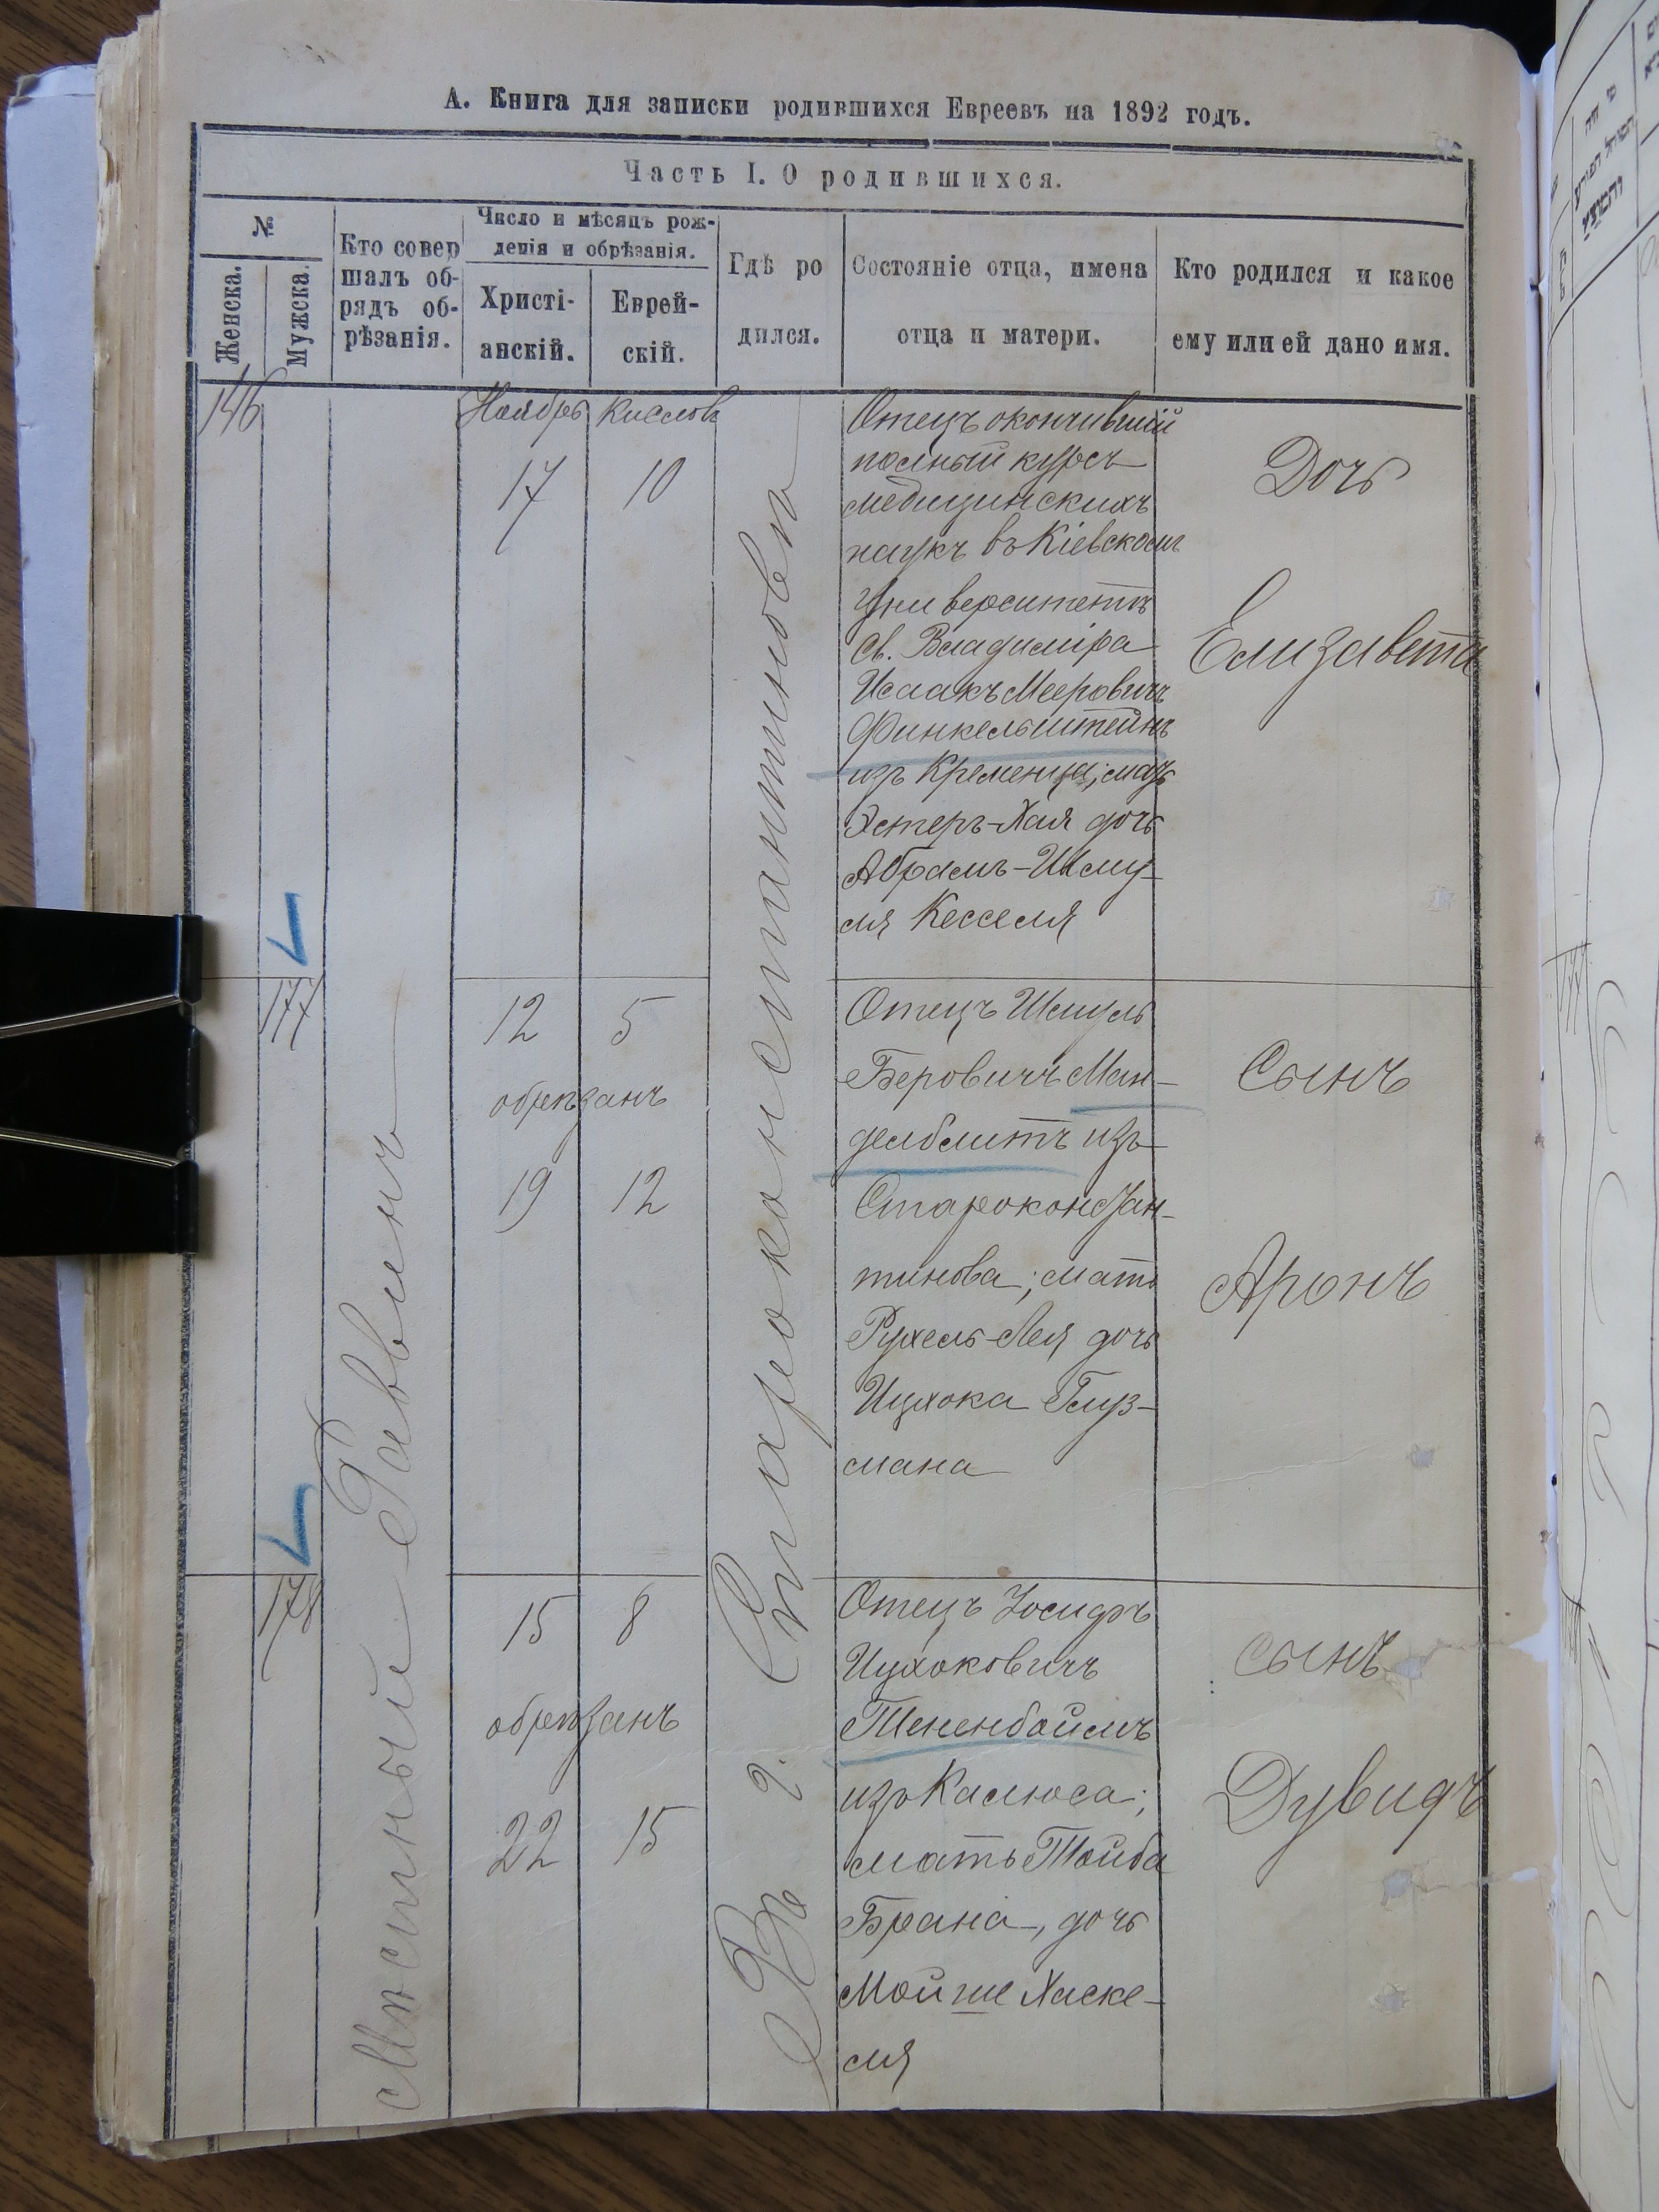 А. Книга для записки родившихся Евреевъ на 1892 годъ.
Часть I. О родившихся.
№
Женска.
Мужска.
Кто совер
шалъ об-
рядъ об-
рѣзанія.
Число и мѣсяцъ рож-
денія и обрѣзанія.
Христі-
анскій.
Еврей-
скій.
Гдѣ ро
дился.
Состояніе отца, имена
отца и матери.
Кто родился и какое
ему или ей дано имя.
146
Ноябрь
Кислевъ
17
10
Отецъ окончившій
полный курсъ
медицинскихъ
наукъ въ Кіевскомъ
Университетѣ
Св. Владиміра
Исаакъ Мееровичъ
Финкельштейнъ
изъ Кременца; мать
Эстеръ-Хая дочь
Абрамъ-Шму-
ля Кесселя
Дочь
Елизавета
177
12
5
обрѣзанъ
19
12
Отецъ Шмуль
Беровичъ Ман-
делблитъ изъ
Староконстан-
тинова; мать
Рухель-Лея дочь
Ицхока Глуз-
мана
Сынъ
Аронъ
178
15
8
обрѣзанъ
22
15
Отецъ Іосифъ
Ицхоковичъ
Тененбаймъ
изъ Калюса;
мать Тойба
Брана, дочь
Мойше Хаске-
ля
Сынъ
Дувидъ
Мѣстный Раввинъ
Въ г. Староконстантиновѣ